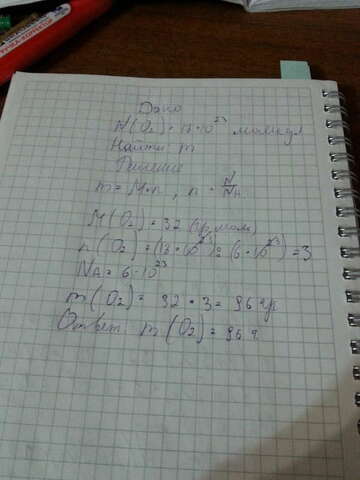 Дано
N(O₂) = 18·10²³ молекул
Найти m
Решение
m = M·n, n = N/Nₐ
M(O₂) = 32 (гр/моль)
n(O₂) = (18·10²³) : (6·10²³) = 3
Nₐ = 6·10²³
m(O₂) = 32 · 3 = 96 гр
Ответ m(O₂) = 96 г.